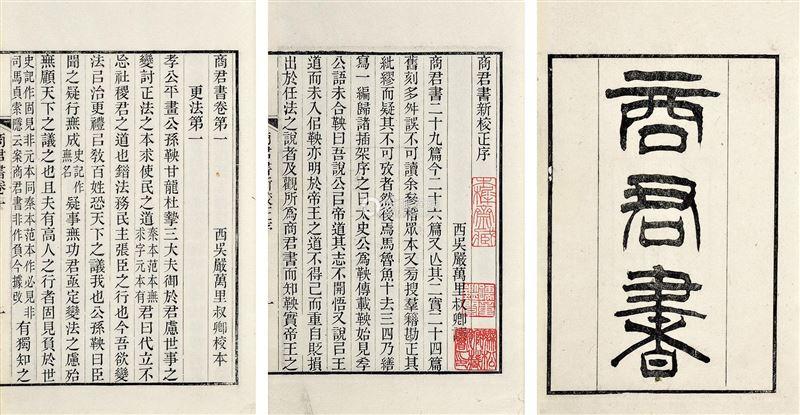 商君書
商君書新校正序
西吳嚴萬里叔卿
商君書二十九篇今二十六篇又亾其二實二十四篇
舊刻多舛誤不可讀余參稽眾本又旁搜羣籍勘正其
紕繆而疑其不可攷者然後焉馬魯魚十去三四乃繕
寫一編歸諸插架序之曰太史公為鞅傳載鞅始見孝
公語未合鞅曰吾說公㠯帝道其志不開悟又說㠯王
道而未入佀鞅亦明於帝王之道不得已而重自貶損
出於任法之說者及觀所為商君書而知鞅實帝王之
商君書卷第一
西吳嚴萬里叔卿校本
更法第一
孝公平畫公孫鞅甘龍杜摯三大夫御於君慮世事之
變討正法之本求使民之道秦本范本無求字元本有君曰代立不
忘社稷君之道也錯法務民主張臣之行也今吾欲變
法㠯治更禮㠯教百姓恐天下之議我也公孫鞅曰臣
聞之疑行無成史記作無名疑事無功君亟定變法之慮殆
無顧天下之議之也且夫有高人之行者固見負於世
史記作固見非元本同秦本范本作必見非司馬貞索隱云案商君書非作負今據改有獨知之